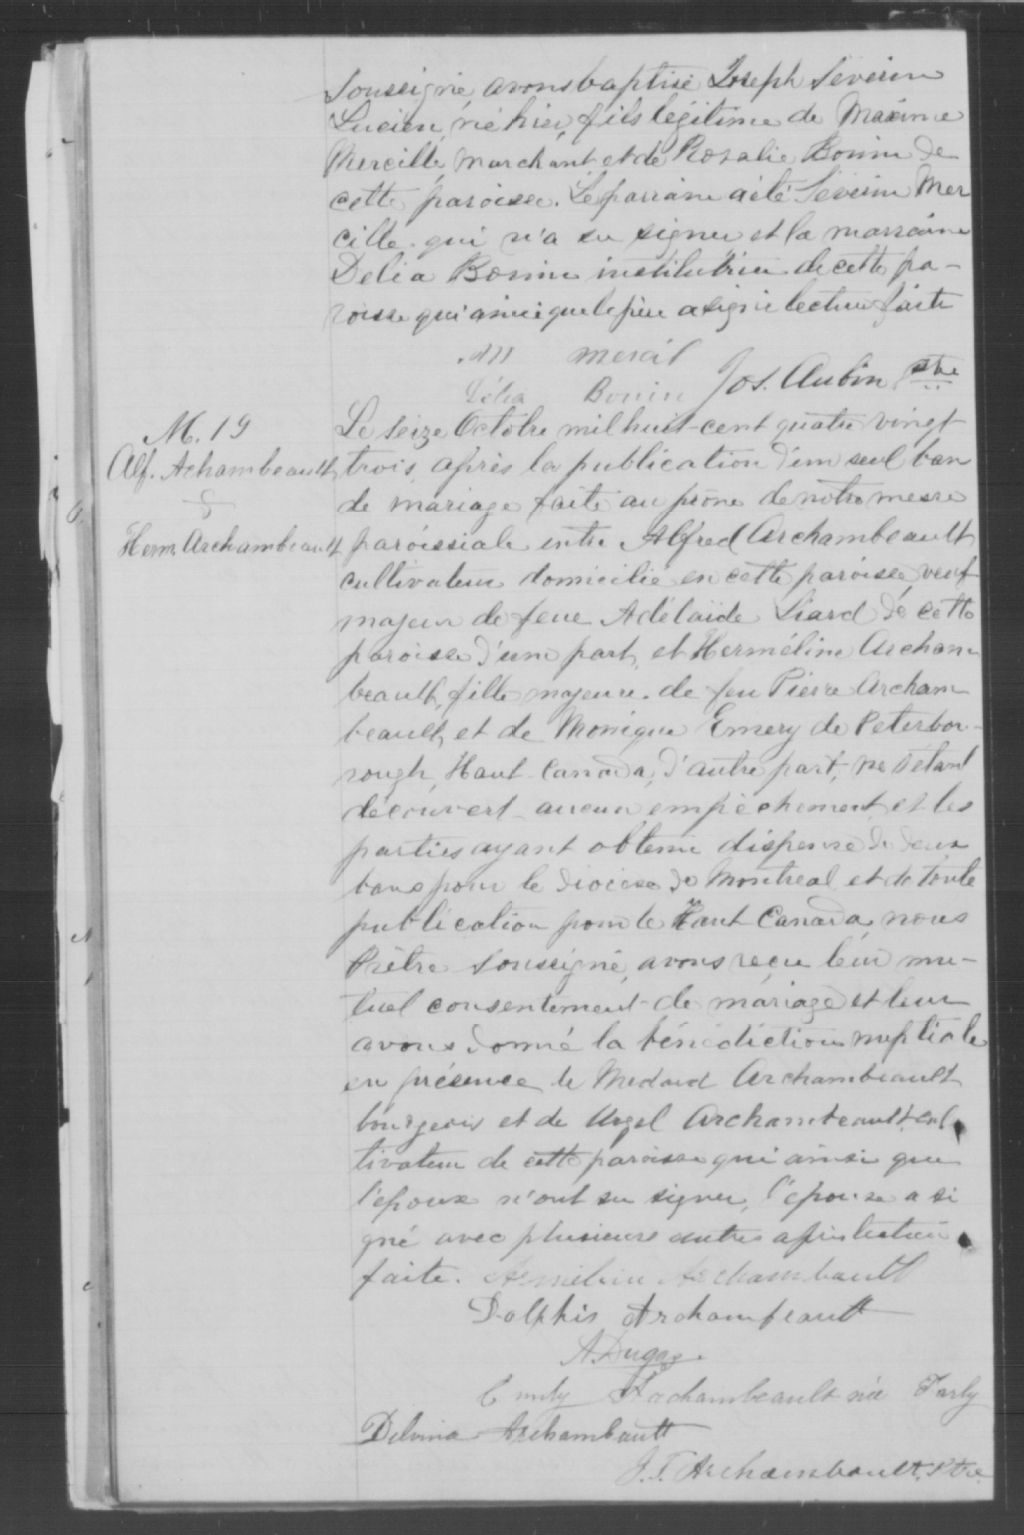 Soussigné avons baptisé Joseph Séverin
Lucien, né hier, fils légitime de Maxime
Mercille, marchant et de Rosalie Bonin de
cette paroisse. Le parrain a été Séverin Mer
cille qui n'a su signer et la marraine
Delia Bonin institutrice de cette pa-
roisse qui ainsi que le père a signé lecture faite
M Mercil
Délia Bonin Jos. Aubin Ptre
M. 19
Alf. Achambeault
&
Herm. Archambeault
Le seize Octobre mil huit-cent quatre vingt
trois, après la publication d'un seul ban
de mariage faite au prône de notre messe
paroissiale entre Alfred Archambeault
cultivateur domicilié en cette paroisse, veuf
majeur de feue Adélaïde Liard de cette
paroisse d'une part, et Herméline Archam
beault, fille majeure de feu Pierre Archam
beault, et de Monique Emery de Peterbor-
rough, Haut Canada, d'autre part, ne s'étant
découvert aucun empêchement et les
parties ayant obtenu dispense de deux
bans pour le diocèse de Montreal et de toute
publication pour le Haut Canada, nous
Prêtre soussigné, avons reçu leur mu-
tuel consentement de mariage et leur
avons donné la bénédiction nuptiale
en présence de Medard Archambeault
bourgeois et de Urgel Archambeault cul
tivateur de cette paroisse qui ainsi que
l'époux n'ont su signer, l'épouse a si
gné avec plusieurs autres après lecture
faite. Armeline Archambault
Dolphis Archambeault
A. Dugas
Emily Archambeault née Farly
Delvina Archambault
J. T. Archambault. Ptre.